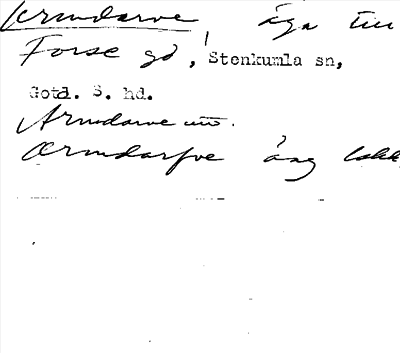 Armdarve äga till
Forse gd, Stenkumla sn,
Gotl. S. hd.
Armdarve
Armdarfve äng